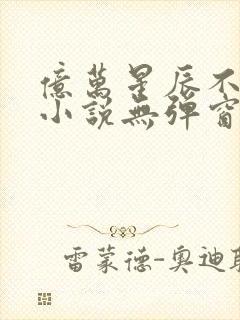 億萬星辰不
小說無彈窗
雷蒙德-奧迪